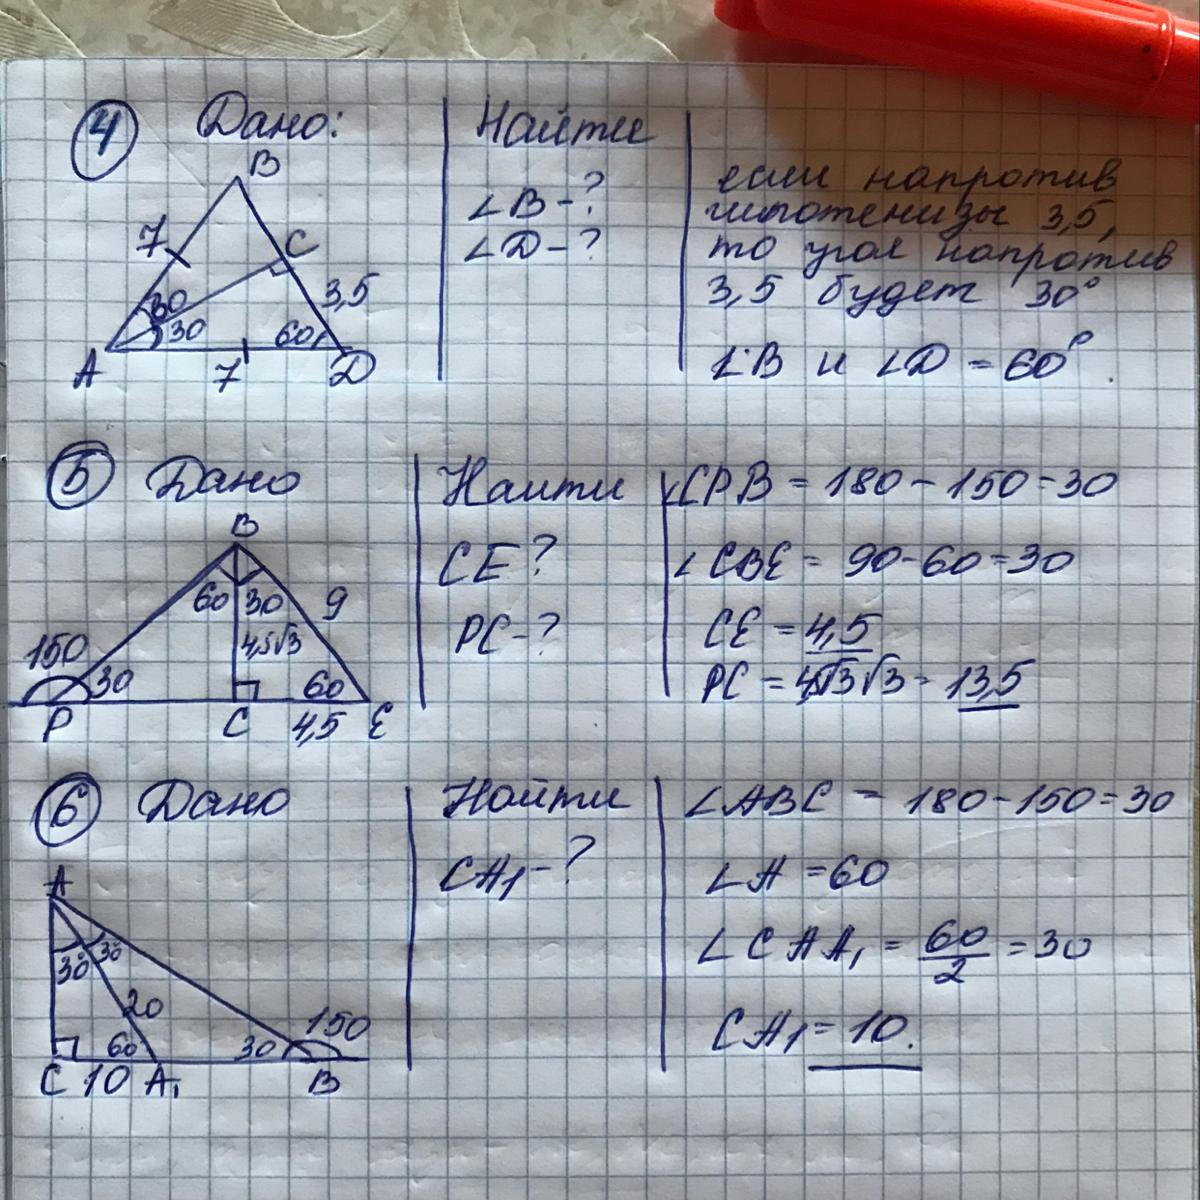 4 Дано:
B
7
C
30
3,5
30
60
A
7
D
Найти
∠B-?
∠D-?
если напротив
гипотенизы 3,5,
то угол напротив
3,5 будет 30°
∠B и ∠D = 60°.
5 Дано
B
60 30 9
150 4,5√3
30 60
P C 4,5 E
Найти
CE?
PC-?
∠CPB = 180-150=30
∠CBE = 90-60=30
CE = 4,5
PC = 4,5√3√3 = 13,5
6 Дано
A
30 30
20
150
60 30
C 10 A₁ B
Найти
CA₁-?
∠ABC = 180-150=30
∠A = 60
∠CAA₁ = 60/2 = 30
CA₁ = 10.